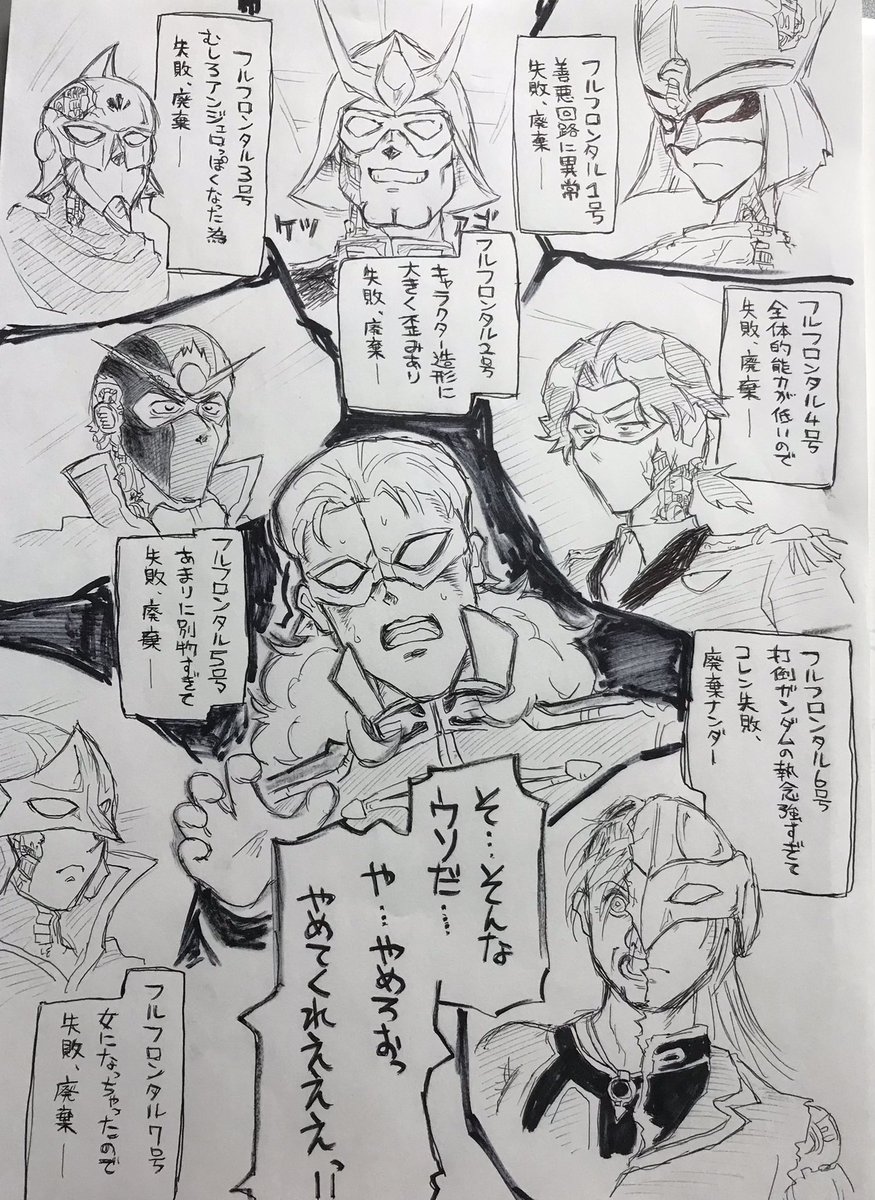 フルフロンタル1号
善悪回路に異常
失敗、廃棄―
フルフロンタル2号
キャラクター造形に
大きく歪みあり
失敗、廃棄―
ケツ
アゴ
フルフロンタル3号
むしろアンジェロっぽくなった為
失敗、廃棄―
フルフロンタル4号
全体的能力が低いので
失敗、廃棄―
フルフロンタル5号
あまりに別物すぎて
失敗、廃棄―
フルフロンタル6号
打倒ガンダムの執念強すぎて
コレン失敗、
廃棄ナンダー
フルフロンタル7号
女になっちゃったので
失敗、廃棄―
そ…そんな
ウソだ…
や…やめろおっ
やめてくれえええっ!!